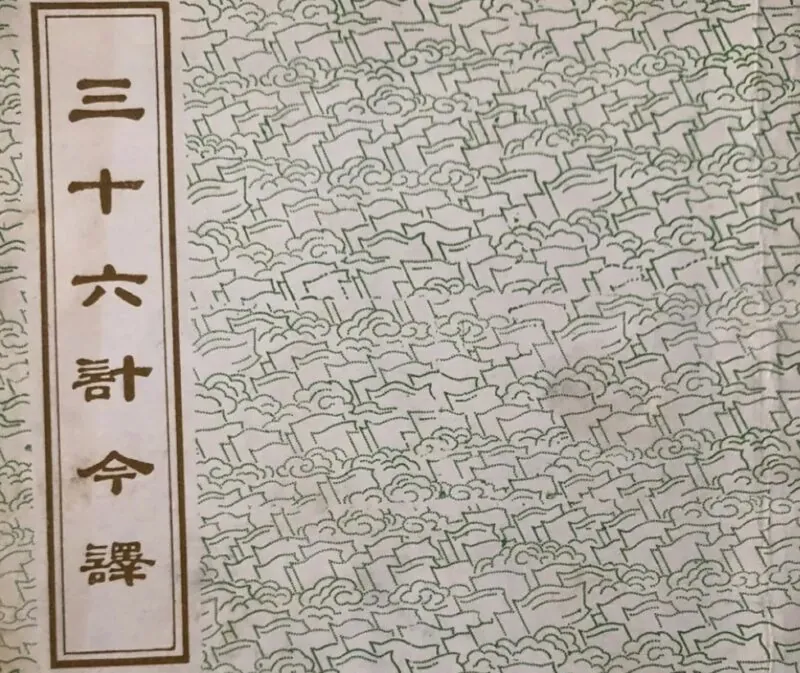 三十六計今譯